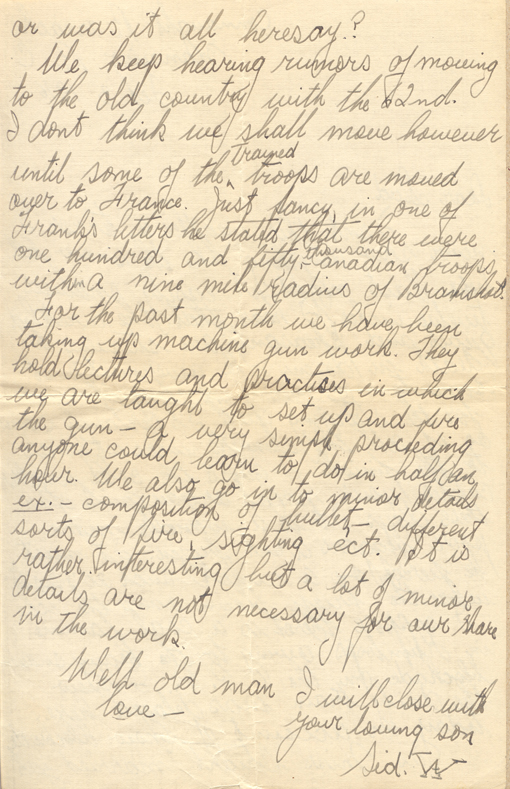 or was it all heresay?
We keep hearing rumors of moving
to the old country with the 82nd.
I dont think we shall move however
until some of the trained troops are moved
over to France. Just fancy, in one of
Frank's letters he stated that there were
one hundred and fifty-thousand Canadian troops
within a nine mile radius of Bramshot.
For the past month we have been
taking up machine gun work. They
hold lectures and practises in which
we are taught to set up and fire
the gun - a very simple proceeding
anyone could learn to do in half an
hour. We also go in to minor details
ex. - composition of bullet - different
sorts of fire, sighting ect. It is
rather interesting but a lot of minor
details are not necessary for our share
in the work.
Well old man I will close with
love - your loving son
Sid. W